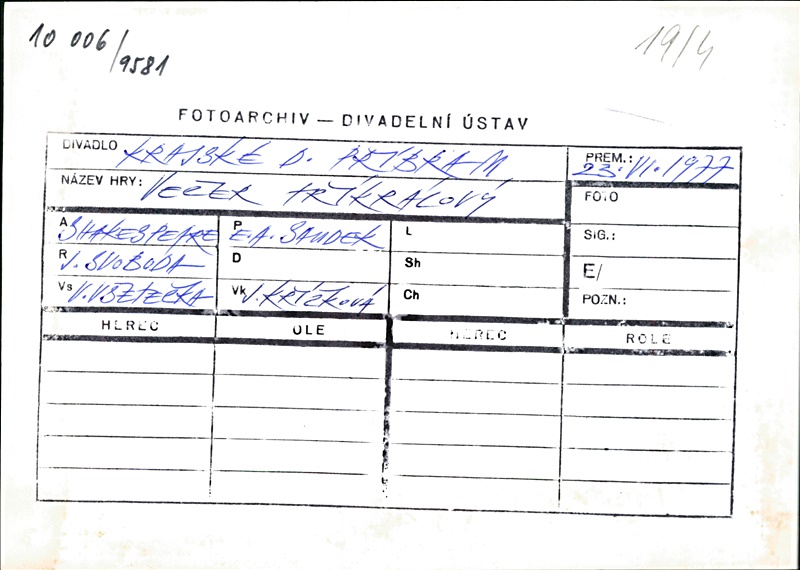 10 006/9581
19/4
FOTOARCHIV — DIVADELNÍ ÚSTAV
DIVADLO KRAJSKÉ D. PŘÍBRAM
PREM.: 23.VI.1977
NÁZEV HRY: VEČER TŘÍKRÁLOVÝ
FOTO
A SHAKESPEARE P E.A. SAUDEK L
SIG.:
R J. SVOBODA D Sh
E/
Vs Vk J. KŘÍŽKOVÁ Ch
POZN.:
HEREC OLE HEREC ROLE